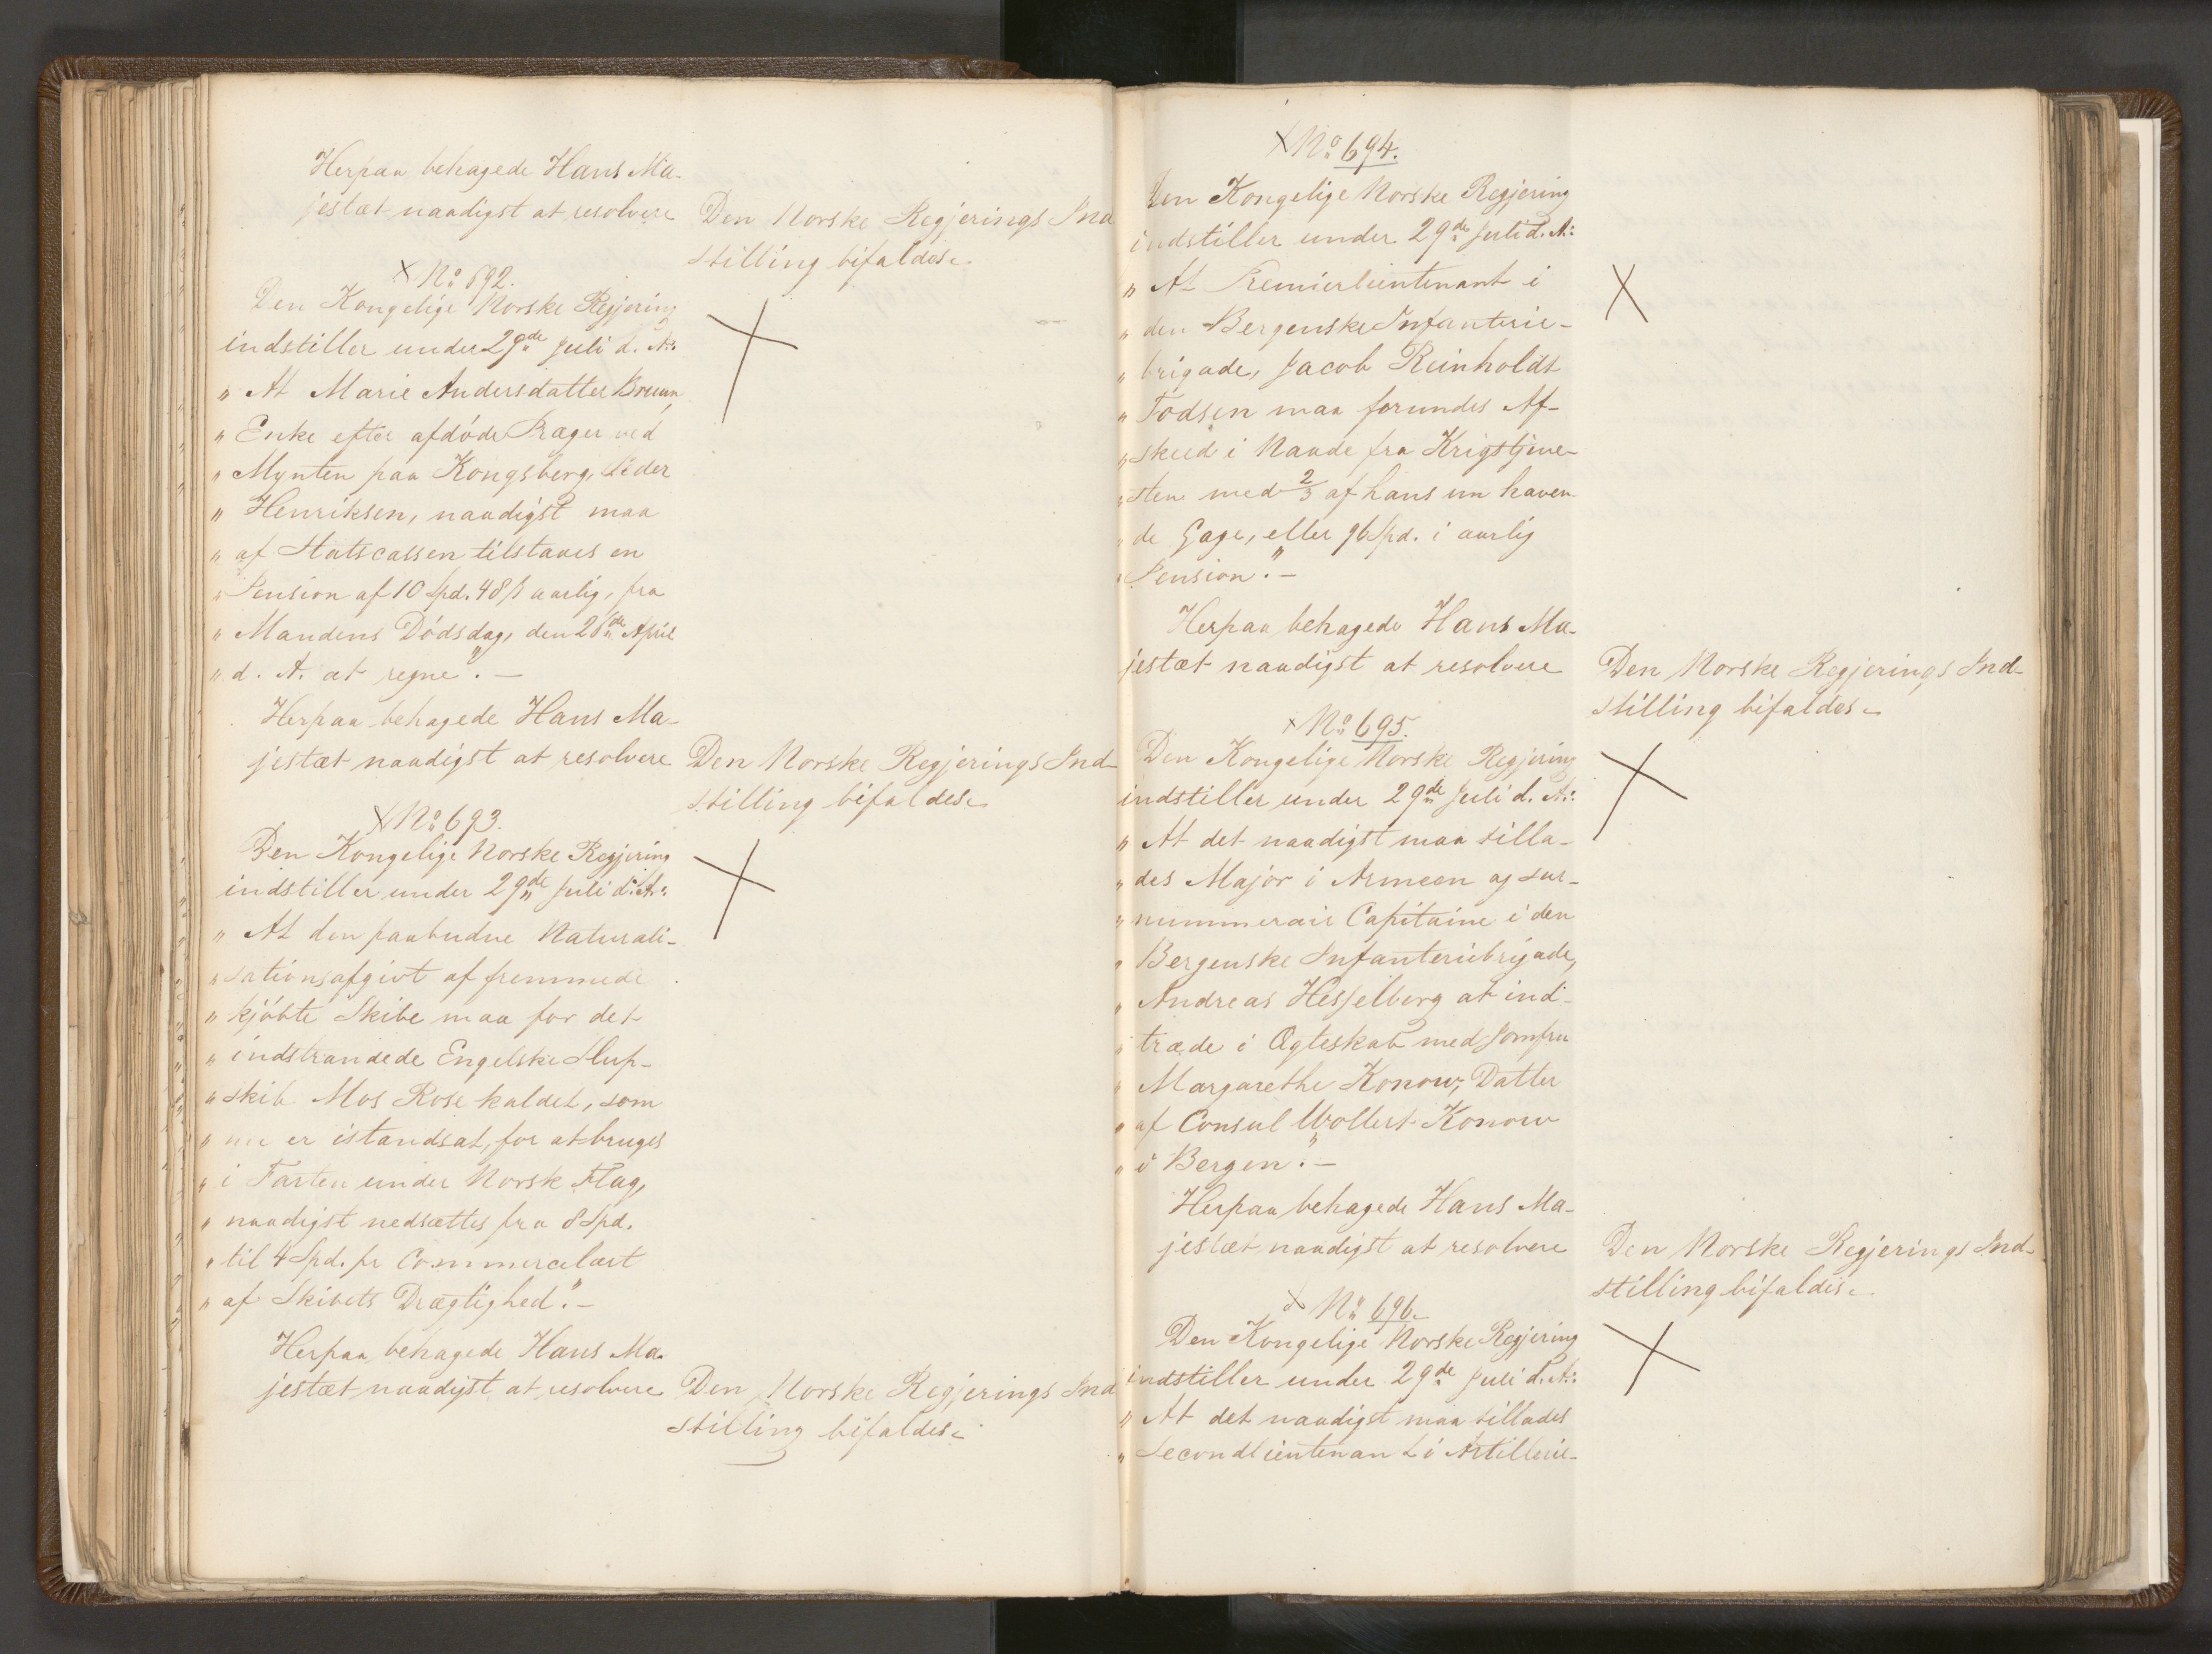 Herpaa behagede Hans Ma-
jestæt naadigst at resolvere
Den Norske Regjerings Ind
stilling bifaldes.
No 692.
Den Kongelige Norske Regjering
indstiller under 29de Juli d. A.:
„ At Marie Andersdatter Bruun,
„ Enke efter afdøde Præger ved
„ Mynten paa Kongsberg, Peder
„ Henriksen, naadigst maa
„ af Statscassen tilstaaes en
„ Pension af 10 Spd. 48 ß aarlig, fra
„ Mandens Dødsdag, den 26de April
„ d. A. at regne". —
Herpaa behagede Hans Ma-
jestæt naadigst at resolvere
Den Norske Regjerings Ind-
stilling bifaldes.
No 693.
Den Kongelige Norske Regjering
indstiller under 29de Juli d. A.:
„ At den paabudne Naturali-
„ sationsafgivt af fremmede
„ kjøbte Skibe maa for det
„ indstrandede Engelske Slup-
„ skib Mos Rose kaldet, som
„ nu er istandsat, for at bruges
„ i Farten under Norsk Flag,
„ naadigst nedsættes fra 8 Spd.
„ til 4 Spd. pr Commercelæst
„ af Skibets Drægtighed". —
Herpaa behagede Hans Ma-
jestæt naadigst at resolvere
Den Norske Regjerings Ind
stilling bifaldes.
No 694.
Den Kongelige Norske Regjering
indstiller under 29de Juli d. A.:
„ At Premierlieutenant i
„ den Bergenske Infanterie-
„ brigade, Jacob Reinholdt
„ Todsen maa forundes Af-
„ skeed i Naade fra Krigstjene-
„ sten med 2/3 af hans nu haven-
„ de Gage, eller 96 Spd. i aarlig
„ Pension". —
Herpaa behagede Hans Ma-
jestæt naadigst at resolvere
Den Norske Regjerings Ind-
stilling bifaldes.
No 695.
Den Kongelige Norske Regjering
indstiller under 29de Juli d. A.:
„ At det naadigst maa tilla-
„ des Major i Armeen og sur-
„ nummerair Capitaine i den
„ Bergenske Infanteriebrigade,
„ Andreas Hesselberg at ind-
„ træde i Ægteskab med Jomfru
„ Margarethe Konow, Datter
„ af Consul Wollert Konow
„ i Bergen". —
Herpaa behagede Hans Ma-
jestæt naadigst at resolvere
Den Norske Regjerings Ind-
stilling bifaldes.
No 696.
Den Kongelige Norske Regjering
indstiller under 29de Juli d. A.:
„ At det naadigst maa tillades
„ Secondlieutenant i Artillerie-